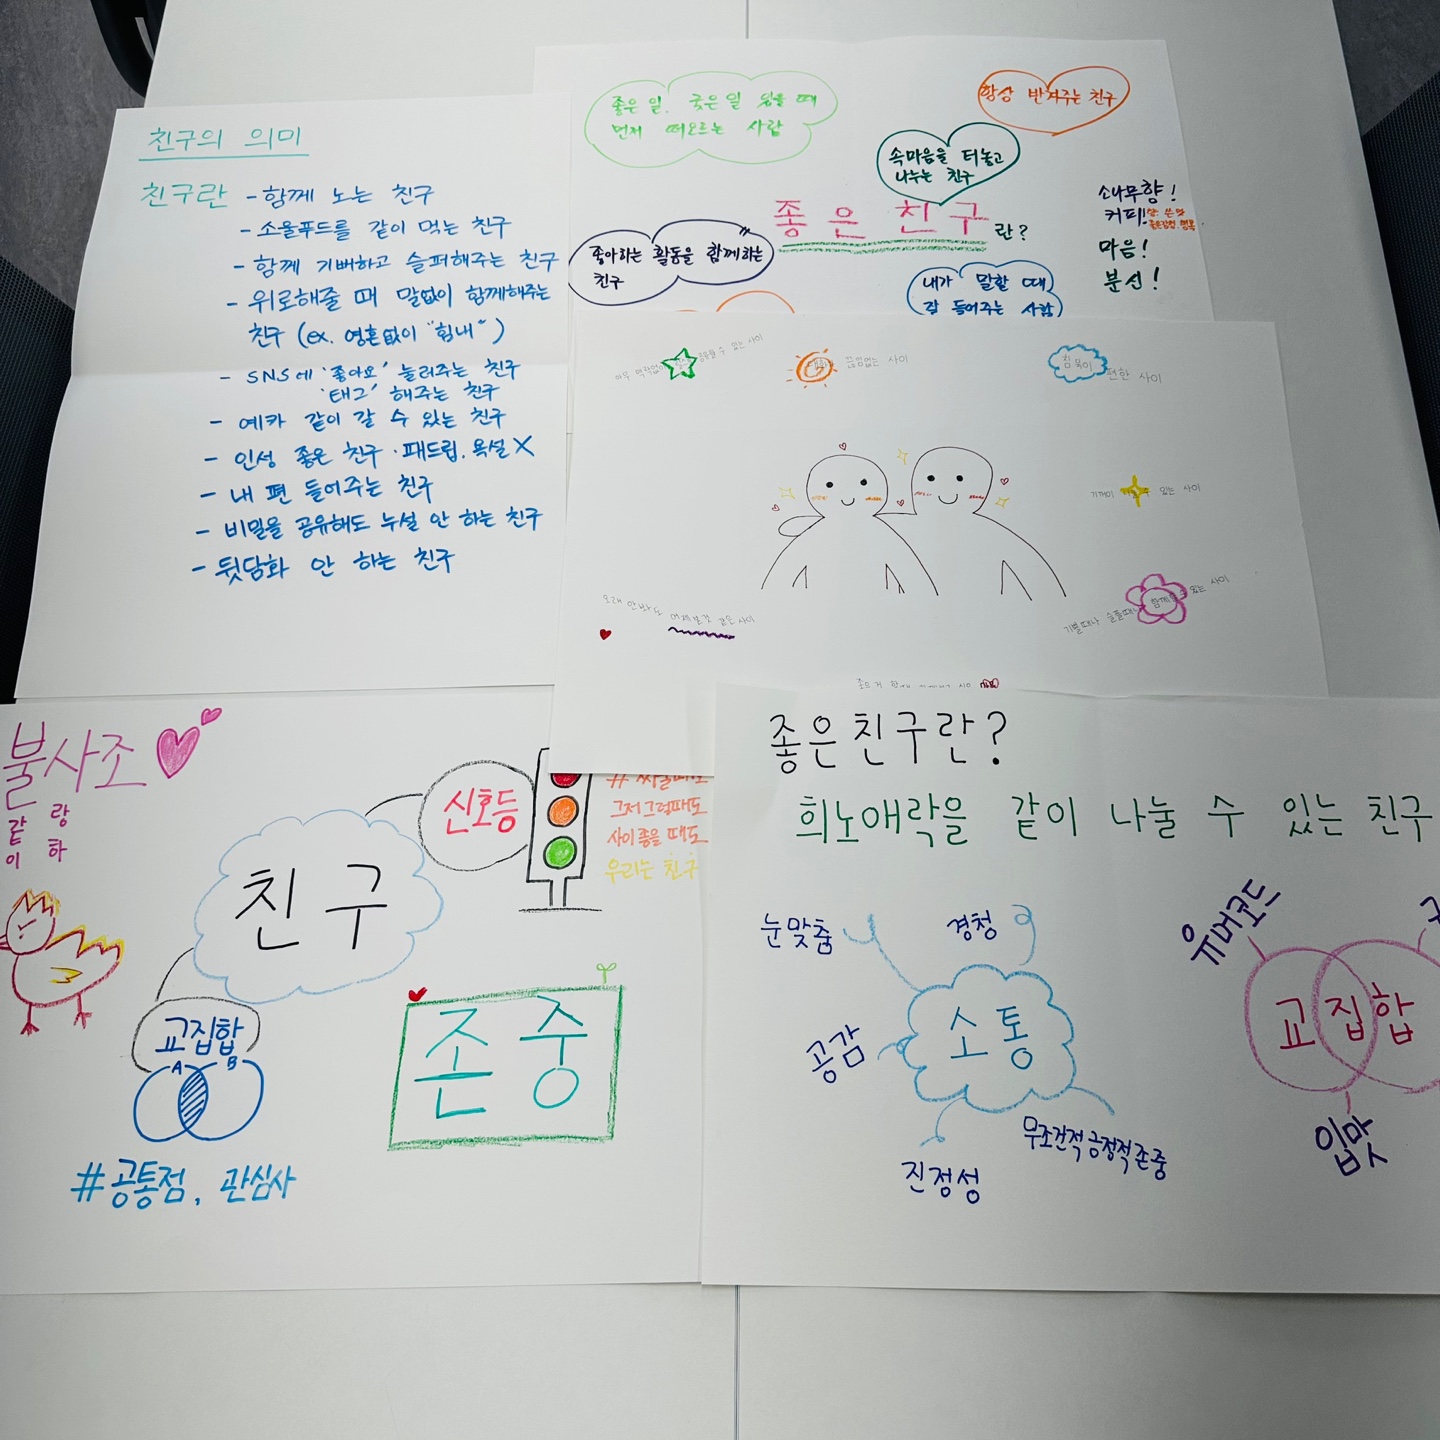 친구의 의미
친구란 - 함께 노는 친구
- 소울푸드를 같이 먹는 친구
- 함께 기뻐하고 슬퍼해주는 친구
- 위로해줄 때 말없이 함께해주는
친구 (ex. 영혼없이 "힘내")
- SNS에 '좋아요' 눌러주는 친구
'태그' 해주는 친구
- 예카 같이 갈 수 있는 친구
- 인성 좋은 친구 · 패드립, 욕설 X
- 내 편 들어주는 친구
- 비밀을 공유해도 누설 안 하는 친구
- 뒷담화 안 하는 친구
좋은 일, 궂은 일 있을 때
먼저 떠오르는 사람
항상 반겨주는 친구
속마음을 터놓고
나누는 친구
좋은 친구란?
좋아하는 활동을 함께하는
친구
내가 말할 때
잘 들어주는 사람
소나무향!
커피!
마음!
분신!
수 있는 사이
끊임없는 사이
침묵이
편한 사이
기꺼이 수 있는 사이
오래 안봐도 어제 본 것 같은 사이
기쁠때나 슬플때나 함께할 수 있는 사이
불사조
같이
랑하
신호등
그저그럴때도
사이좋을 때도
우리는 친구
친구
교집합
A B
#공통점, 관심사
존중
좋은친구란?
희노애락을 같이 나눌 수 있는 친구
눈맞춤
경청
공감
소통
진정성
무조건적 긍정적 존중
유머코드
교집합
입맛